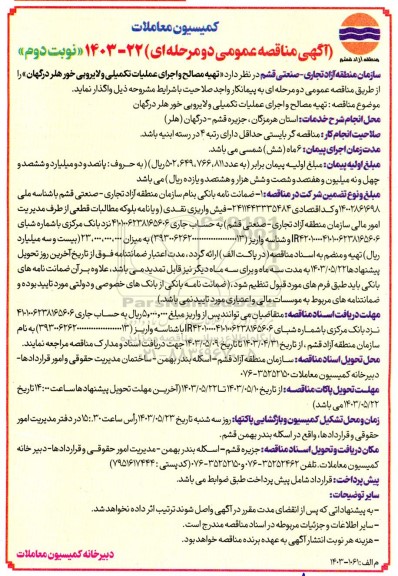 کمیسیون معاملات
(آگهی مناقصه عمومی دو مرحله ای) ۲۲-۱۴۰۳ «نوبت دوم»
منطقه آزاد قشم
سازمان منطقه آزاد تجاری - صنعتی قشم در نظر دارد «تهیه مصالح و اجرای عملیات تکمیلی و لایروبی خور هلر درگهان» را
از طریق مناقصه عمومی دو مرحله ای به پیمانکار واجد صلاحیت با شرایط مشروحه ذیل واگذار نماید.
موضوع مناقصه : تهیه مصالح و اجرای عملیات تکمیلی و لایروبی خور هلر درگهان
محل انجام شرح خدمات: استان هرمزگان، جزیره قشم - درگهان (هلر)
صلاحیت انجام کار : مناقصه گر بایستی حداقل دارای رتبه ۴ در رسته ابنیه باشد.
مدت زمان اجرای پیمان : ۶ ماه (شش) شمسی می باشد.
مبلغ اولیه پیمان : مبلغ اولیه پیمان برابر (به عدد ۵۰۲,۶۴۹,۷۶۶,۸۱۱ ریال) (به حروف : پانصد و دو میلیارد و ششصد و
چهل و نه میلیون و هفتصد و شصت و شش هزار و هشتصد و یازده ریال) می باشد
مبلغ و نوع تضمین شرکت در مناقصه : ۱- ضمانت نامه بانکی بنام سازمان منطقه آزاد تجاری - صنعتی قشم با شناسه ملی
۱۴۰۰۲۸۶۱۶۹۸ و کد اقتصادی ۴۱۱۴۴۳۳۳۵۴۸۴ فیش واریزی نقدی (و یا نامه بلوکه مطالبات قطعی از طرف مدیریت
امور مالی سازمان منطقه آزاد تجاری - صنعتی قشم) به حساب جاری ۴۱۰۱۰۰۶۲۳۸۱۶۵۶۰۶ نزد بانک مرکزی با شماره شبای
ریال) تهیه و منضم به اسناد مناقصه (در پاکت الف) ارائه گردد، مدت اعتبار ضمانتنامه فوق از تاریخ آخرین روز تحویل
پیشنهادها ۱۴۰۳/۰۵/۲۲ به مدت سه ماه و برای سه ماه دیگر نیز قابل تمدید می باشد، علاوه بر آن ضمانت نامه های
بانکی باید طبق فرم های مورد قبول تنظیم شود. (ضمانت نامه بانکی از بانک های خصوصی و دولتی مورد تایید بوده و
ضمانتنامه های مربوط به موسسات مالی و اعتباری مورد تایید نمی باشد)
سازمان منطقه آزاد قشم، از تاریخ ۱۴۰۳/۰۴/۳۱ تا تاریخ ۱۴۰۳/۰۵/۰۹ جهت دریافت اسناد و مدارک مناقصه مراجعه نمایند.
محل تحویل اسناد مناقصه : سازمان منطقه آزاد قشم - اسکله بندر بهمن - ساختمان مدیریت حقوقی و امور قراردادها -
دبیرخانه کمیسیون معاملات ۳۵۲۵۲۳۵۰-۰۷۶
مهلت تحویل پاکات مناقصه : از تاریخ ۱۴۰۳/۰۵/۱۰ تا ۱۴۰۳/۰۵/۲۲ (آخرین مهلت تحویل پیشنهادها ساعت ۱۴:۰۰ تاریخ
۱۴۰۳/۰۵/۲۲ می باشد)
زمان و محل تشکیل کمیسیون و بازگشایی پاکتها: روز سه شنبه تاریخ ۱۴۰۳/۰۵/۲۳ راس ساعت ۱۵:۳۰ در دفتر مدیریت امور
حقوقی و قراردادها، واقع در اسکله بندر بهمن قشم.
مکان دریافت و تحویل اسناد مناقصه : جزیره قشم - اسکله بندر بهمن - مدیریت امور حقوقی و قراردادها - دبیر خانه
کمیسیون معاملات. تلفن ۳۵۲۵۲۴۶۲-۰۷۶ و ۳۵۲۵۲۳۵۰-۰۷۶ (کد پستی : ۷۹۵۱۶۱۷۴۴۴)
پیش پرداخت: قرارداد شامل پیش پرداخت طبق ضوابط می باشد.
سایر توضیحات:
- به پیشنهاداتی که پس از انقضای مدت مقرر در آگهی واصل شوند ترتیب اثر داده نخواهد شد.
- سایر اطلاعات و جزئیات مربوطه در اسناد مناقصه مندرج است.
- هزینه هر نوبت انتشار آگهی به عهده برنده مناقصه خواهد بود.
م الف: ۱۰۶۱-۱۴۰۳
دبیرخانه کمیسیون معاملات